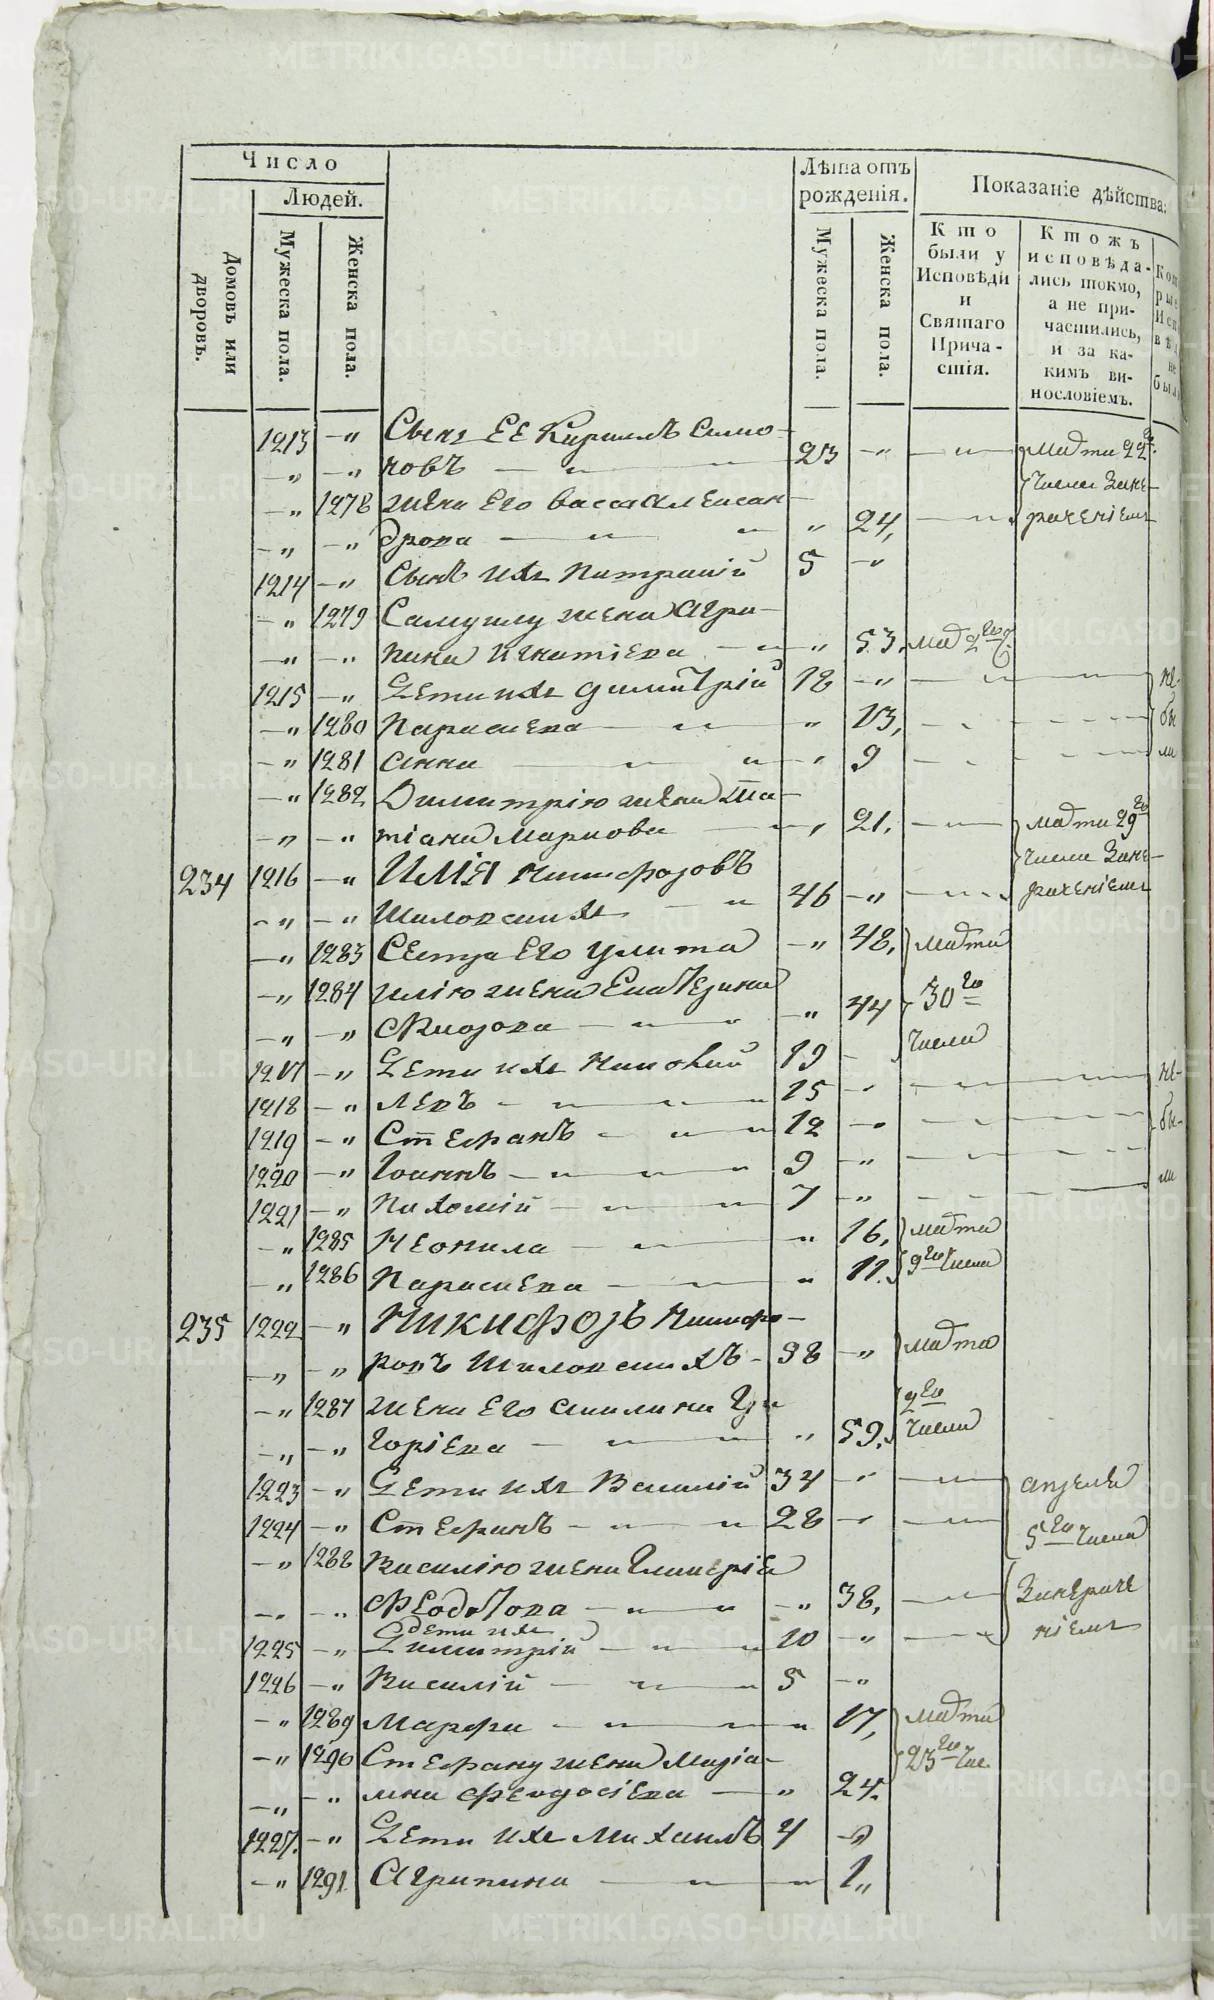 METRIKI.GASO-URAL.RU
Число
Людей.
Домовъ или дворовъ.
Мужеска пола.
Женска пола.
Лѣта отъ рожденія.
Мужеска пола.
Женска пола.
Показаніе дѣйства:
Кто были у Исповѣди и Святаго Причастія.
Ктожъ исповѣдались токмо, а не причастились, и за какимъ винословіемъ.
1213 -„ Сынъ Ее Кириллъ Симо-
-„ -„ новъ 23 -„ марта 22го
-„ 1278 жена Его Васса Алексан- числа Зане-
-„ -„ дрова „ 24, рачениемъ
1214 -„ Сынъ ихъ Патрикій 5 -„
-„ 1279 Самуилу жена Агри-
-„ -„ пина Игнатіева „ 53,
1215 -„ Дети ихъ Димитрій 18 -„ не
-„ 1280 Параскева „ 13, бы
-„ 1281 Анна „ 9 ли
-„ 1282 Димитрію жена Та-
-„ -„ тіана Маркова „ 21, марта 29го
234 1216 -„ ИЛІЯ Никифоровъ числа Зане-
-„ -„ Шиловскихъ 46 -„ рачениемъ
-„ 1283 Сестра Его Улита -„ 48, марта
-„ 1284 Илію жена Екатерина 30го
-„ -„ Фйодова -„ 44 числа
1217 -„ Дети ихъ Николай 19 - не-
1218 -„ Левъ 15 -„ бы-
1219 -„ Стефанъ 12 -„ ли
1220 -„ Іоаннъ 9 -„
1221 -„ Пахомій 7 -„
-„ 1285 Неонила „ 16, марта
-„ 1286 Параскева „ 11. 9го числа
235 1222 -„ НИКИФОРЪ Никифо-
-„ -„ ровъ Шиловскихъ - 38 -„ марта
-„ 1287 жена Его Акилина Гри 2го
-„ -„ горіева „ 59, числа
1223 -„ Дети ихъ Василій 34 -„ апреля
1224 -„ Стефанъ 28 -„ 5го числа
-„ 1288 Василію жена Гликеріа
-„ -„ Федотова -„ 38, Занераче
дети ихъ
1225 -„ Димитрій 10 -„ ніемъ
1226 -„ Василій 5 -„
-„ 1289 Марфа „ 17, марта
-„ 1290 Стефану жена Маріа- 23го чис.
-„ -„ мна Феодосіева „ 24.
1227. -„ Дети ихъ Михаилъ 4 -„
-„ 1291 Агрипина „ 1„